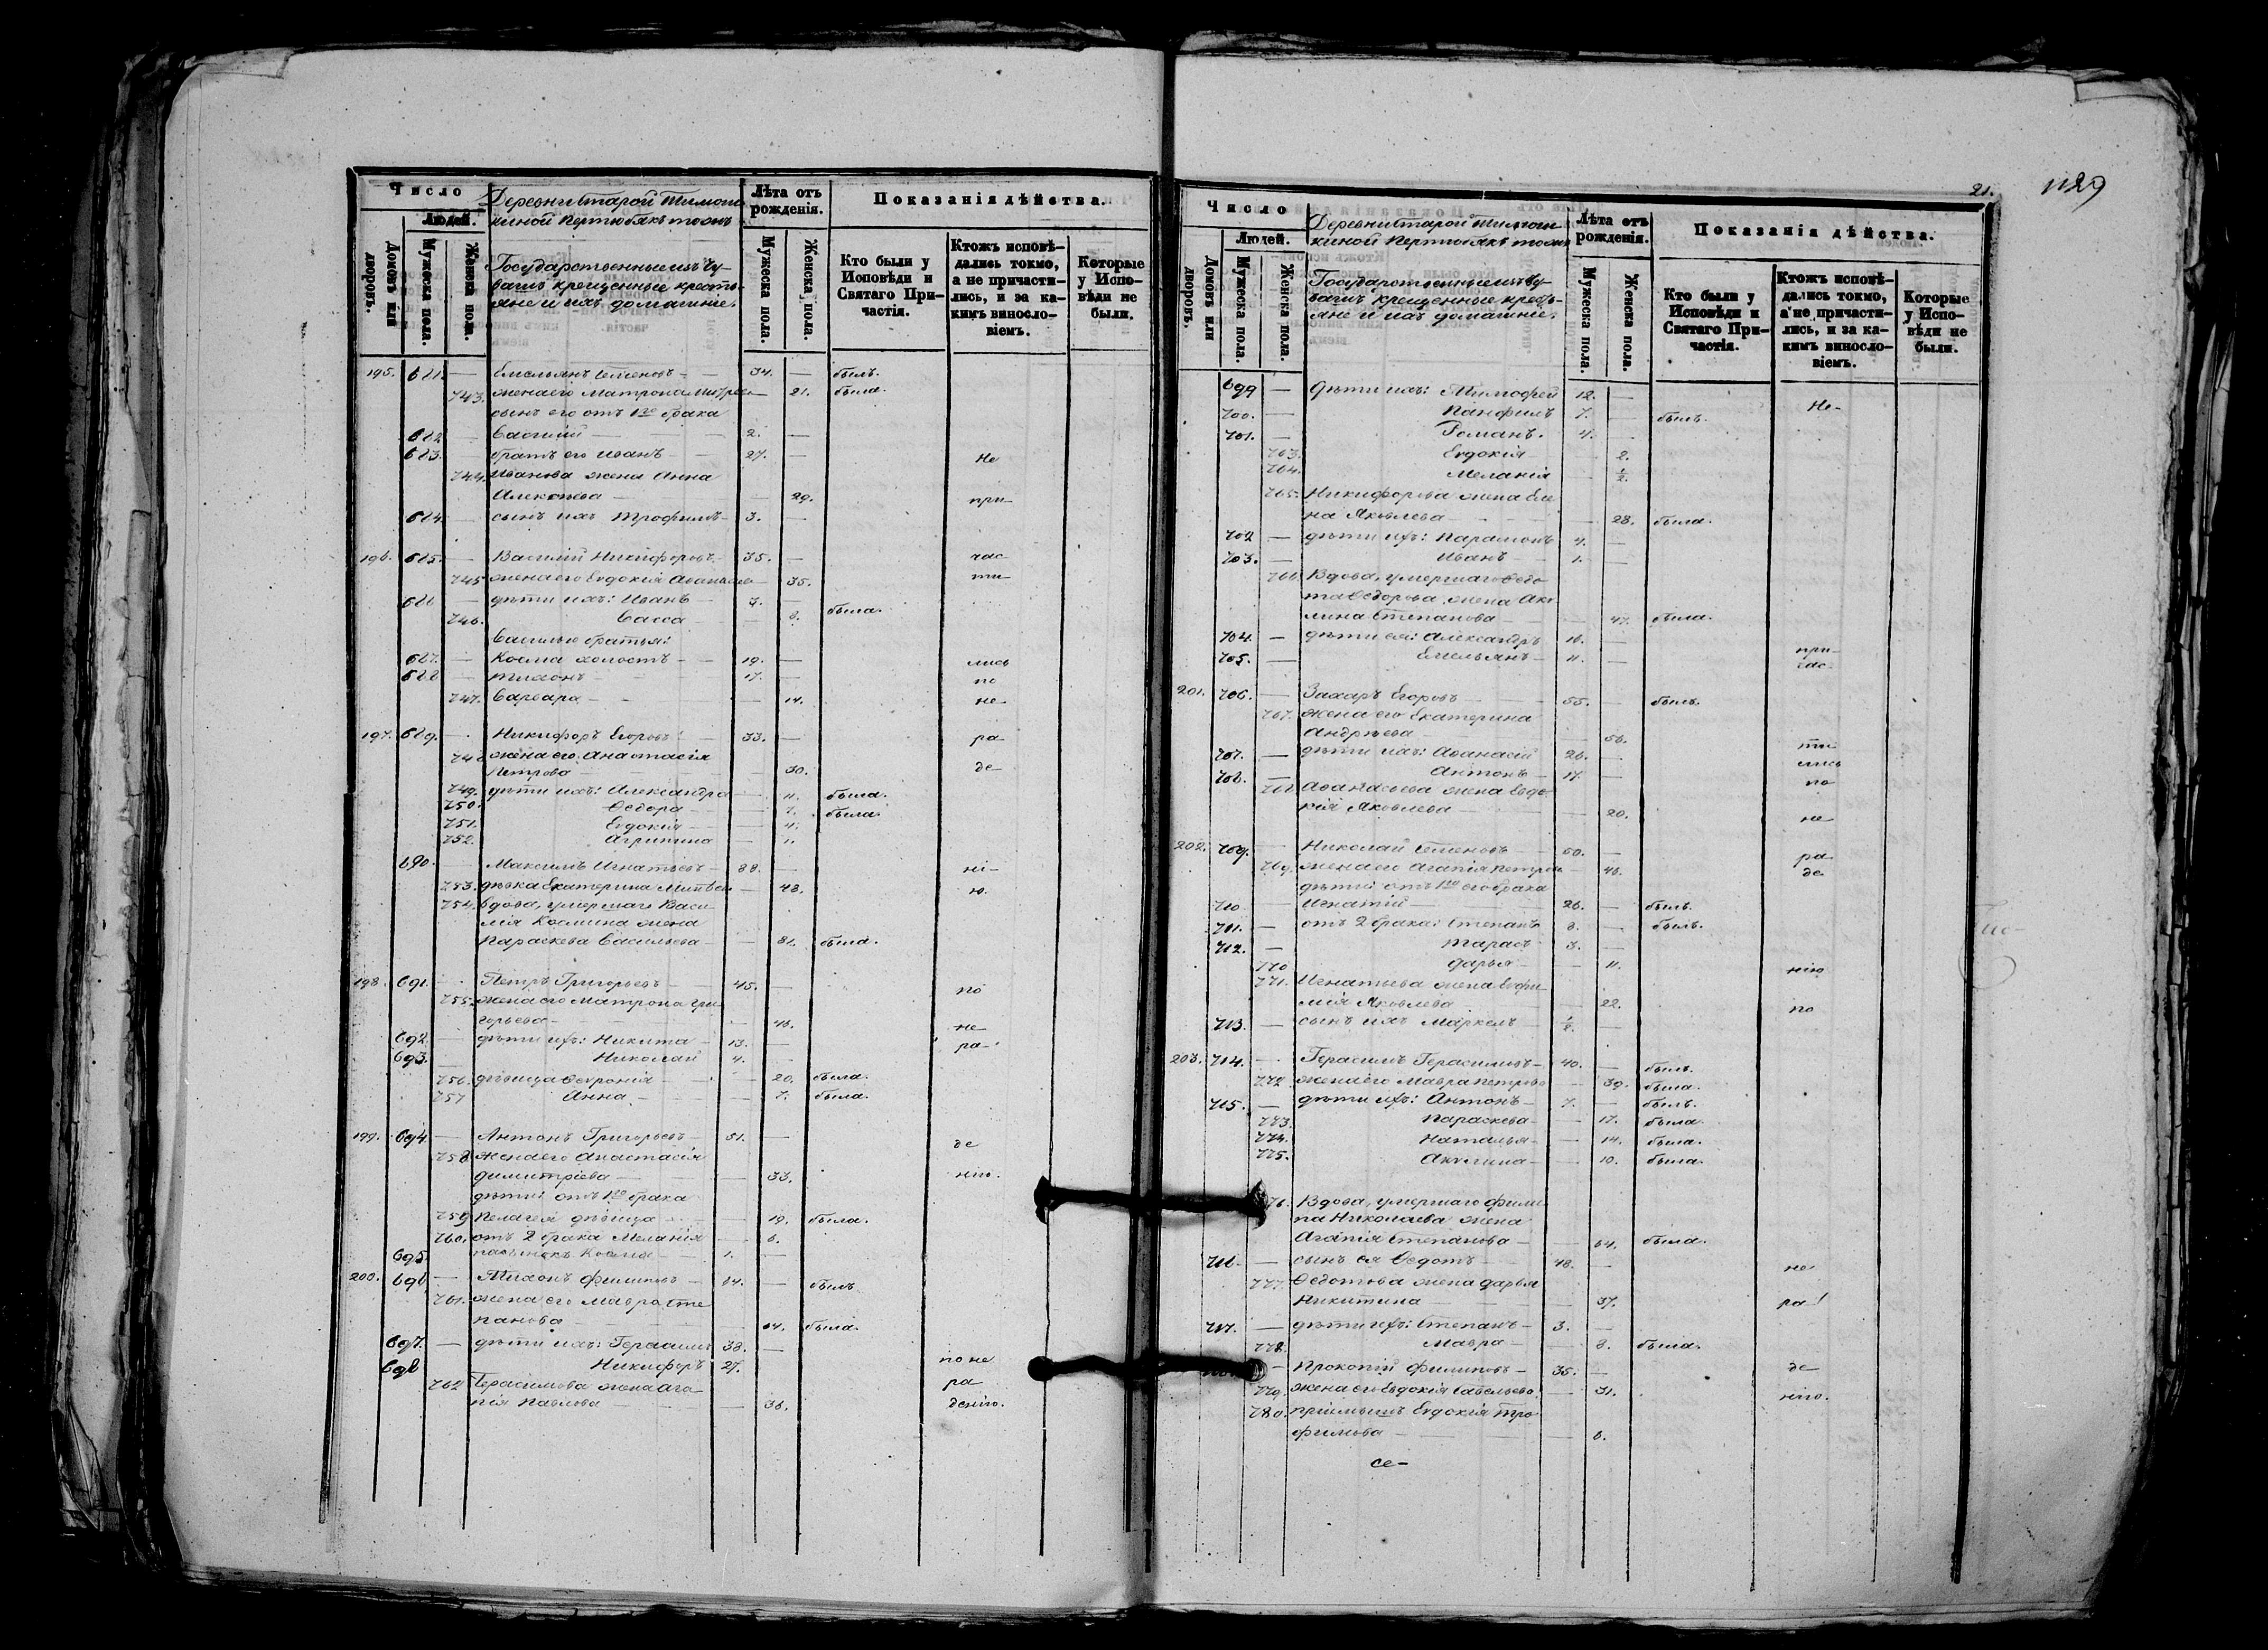 Число
Людей.
Домовъ или дворовъ.
Мужеска пола.
Женска пола.
Деревни Старой Тимош
киной Пертюбяк тоожъ
Государственные изъ Чу-
вашъ крещенные кресть-
яне и ихъ домашніе.
Лѣта отъ рожденія.
Мужеска пола.
Женска пола.
Показанія дѣйства.
Кто были у
Исповѣди и
Святаго При-
частія.
Ктожъ исповѣ-
дались токмо,
а не причасти-
лись, и за ка-
кимъ виносло-
віемъ.
Которые
у Испо-
вѣди не
были.
195. 681. — Емельянъ Семеновъ — 34. — былъ.
743. жена его Матрона Андрее — 21. была.
сынъ его отъ 1го брака
682 — Василій — 2. —
683. — братъ его Иванъ — 27. — Не
744. Иванова жена Анна
Алексѣева — 29. при-
684. — сынъ ихъ Трофимъ — 3. —
196. 685. — Василій Никифоровъ — 35. — час
745 жена его Евдокія Аѳанасье — 35. ти-
686 — дѣти ихъ: Иванъ — 7. —
746. Васса — 8. была.
Василью братья:
687. — Косма холостъ — 19. — лись
688 — Тихонъ — 17. — по
747. Варвара — 14. не-
197. 689. — Никифоръ Егоровъ — 33. — ра-
748 жена его Анастасія
Петрова — 30. де-
749. дѣти ихъ: Александра — 11. была.
750. Ѳедора — 7. была.
751. Евдокія — 4.
752. Агрипина — 1.
690. — Максимъ Игнатьевъ — 88. — ні-
753. дѣвка Екатерина — 48. ю.
754. Вдова, умершаго Васи-
лія Космина жена
Параскева Васильева — 81. была.
198. 691. — Петръ Григорьевъ — 45. — по
755. жена его Матрона Гри
горьева — 46. не-
692. — дѣти ихъ: Никита — 13. — ра-
693. — Николай 4. —
756. дѣвица Ѳевронія — 20. была.
757 Анна — 7. была.
199. 694. — Антонъ Григорьевъ — 51. — де
758 жена его Анастасія
Димитріева — 33. нію.
дѣти: отъ 1го брака
759 Пелагея дѣвица — 19. была.
760. отъ 2 брака Меланія — 6.
695. Косма — 1. —
200. 696 — Тихонъ Филиповъ — 64. — былъ
761. жена его Мавра Сте
панова — 64. была.
697. — дѣти ихъ: Герасимъ 38. —
698 Никифоръ 27. по не
762 Герасимова жена Ага-
пія Павлова — 36. ра
денію.
21. 1129
Число
Людей.
Домовъ или дворовъ.
Мужеска пола.
Женска пола.
Деревни Старой Тимош
киной Пертюбяк тоожъ
Государственные изъ Чу-
вашъ крещенные кресть-
яне и ихъ домашніе.
Лѣта отъ рожденія.
Мужеска пола.
Женска пола.
Показанія дѣйства.
Кто были у
Исповѣди и
Святаго При-
частія.
Ктожъ исповѣ-
дались токмо,
а не причасти-
лись, и за ка-
кимъ виносло-
віемъ.
Которые
у Испо-
вѣди не
были.
699 — Дѣти ихъ: Тимофей 12. — Не-
700. — Панфилъ 7. — былъ.
701. — Романъ. 4. —
763. Евдокія — 2.
764. Меланія — ½.
765. Никифорова жена Еле
на Яковлева — 28. была.
702 — дѣти ихъ: Парамонъ 4. —
703. — Иванъ — 1. —
766. Вдова, умершаго Ѳедо
та Ѳедорова жена Аку
лина Степанова — 47. была.
704. — дѣти ея: Александръ 16. — при-
705. — Емельянъ — 11. — час-
201. 706. — Захаръ Егоровъ — 55. — былъ.
767. жена его Екатерина
Андрѣева — 56. ти-
707. — дѣти ихъ: Аѳанасій 26. — лись
708. — Антонъ — 17. — по
768 Аѳанасьева жена Евдо
кія Яковлева — 20. не-
202. 709. — Николай Семеновъ — 50. — ра-
769. жена его Агапія Петров — 46. де-
дѣти, отъ 1го его брака
710 — Игнатій — 26. — былъ.
711. — отъ 2 брака: Степанъ 8. — былъ.
712. — Тарасъ — 3. —
770 Дарья — 11. нію
771. Игнатьева жена Евфи
мія Яковлева — 22. по
713. — сынъ ихъ Маркелъ — ½. —
203. 714. — Герасимъ Герасимовъ — 40. — былъ.
772 жена его Мавра Петрова — 39. была.
715. — дѣти ихъ: Антонъ — 7. — былъ.
773. Параскева — 17. была.
774. Наталья — 14. была.
775. Акулина — 10. была.
76. Вдова, умершаго Фили
па Николаева жена
Агапія Степанова — 64. была.
716 — сынъ ея Ѳедотъ — 48. — не
777. Ѳедотова жена Дарья
Никитина — 37. ра-
717. — дѣти ихъ: Степанъ — 3. —
778. Мавра — 8. была.
— Прокопій Филиповъ — 35. — де
779. жена его Евдокія Савельева. — 31. нію.
780. пріимышъ Евдокія Тро
фимова — 6.
се-